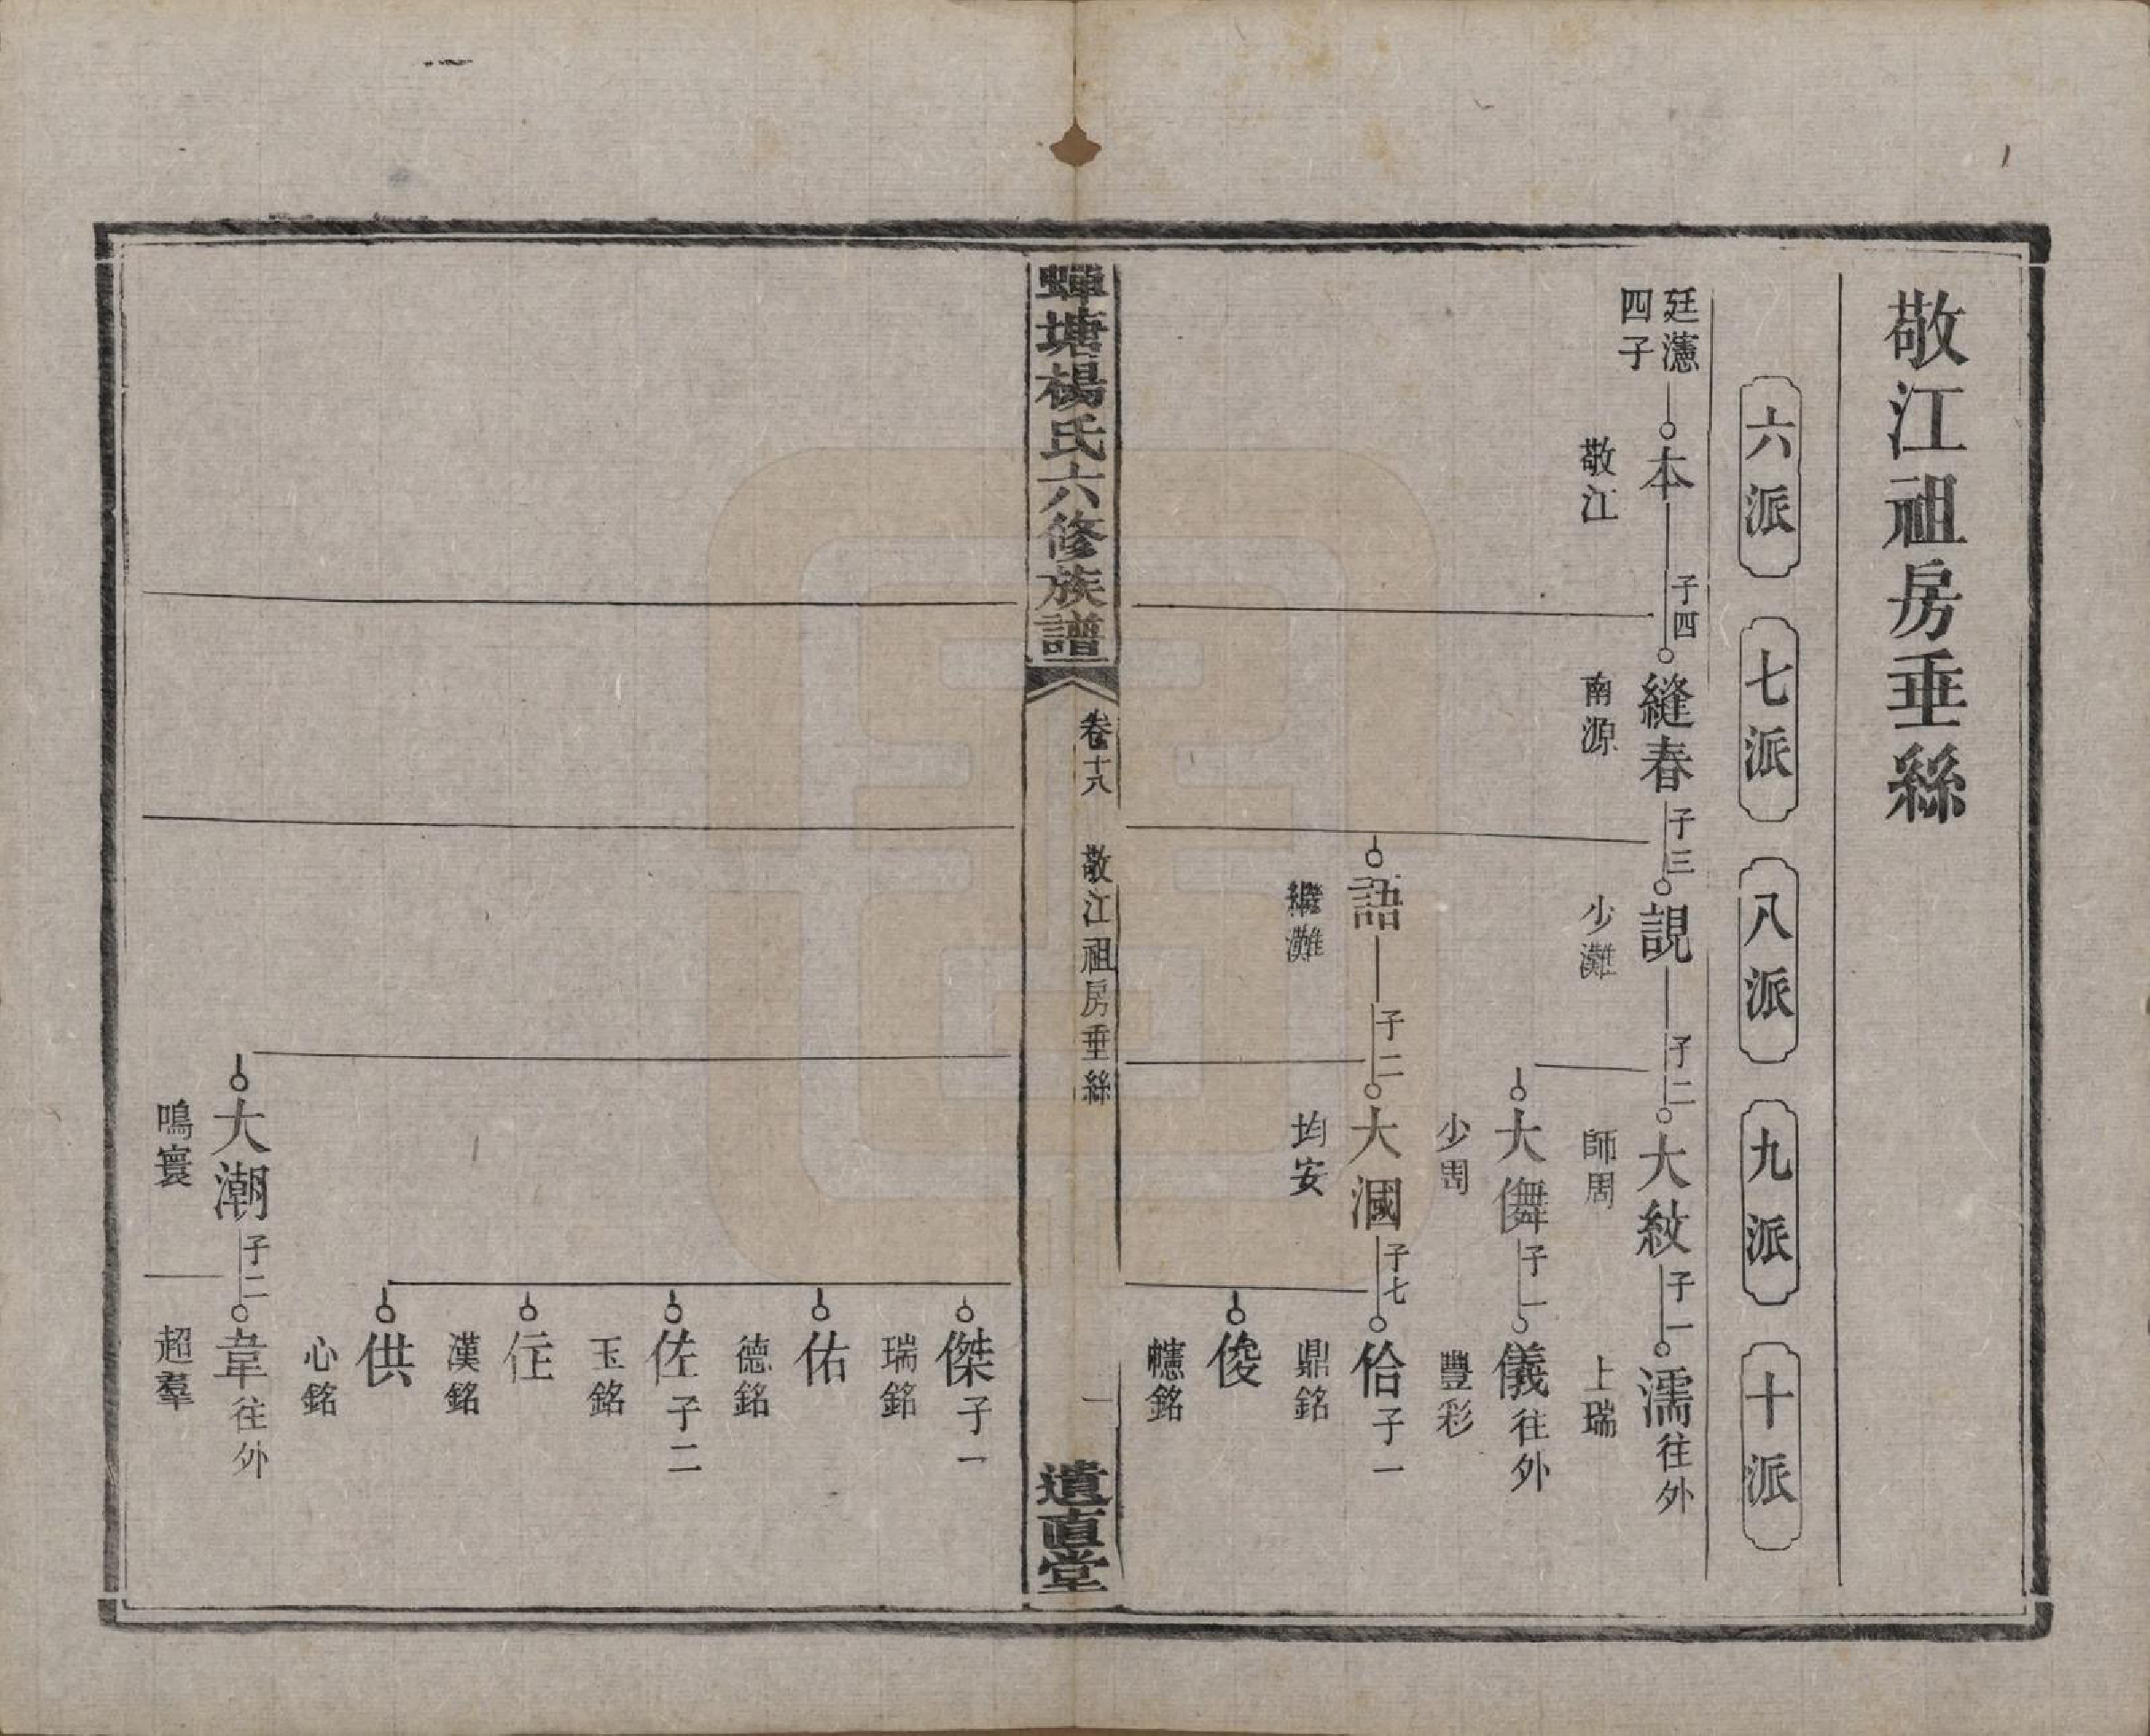 敬江祖房垂絲
六派
七派
八派
九派
十派
廷藼
四子
本
敬江
子四
縫春
南源
子三
䚾
少灘
子二
大紋
師周
子一
濡往外
上瑞
大儛
少周
子一
儀往外
豐彩
語
繼灘
子二
大漍
均安
子七
佮子一
鼎銘
俊
幰銘
蟬塘楊氏六修族譜
卷十八
敬江祖房垂絲
一
遺直堂
傑子一
瑞銘
佑
德銘
佐子二
玉銘
任
漢銘
供
心銘
大潮
鳴寰
子二
韋往外
超羣